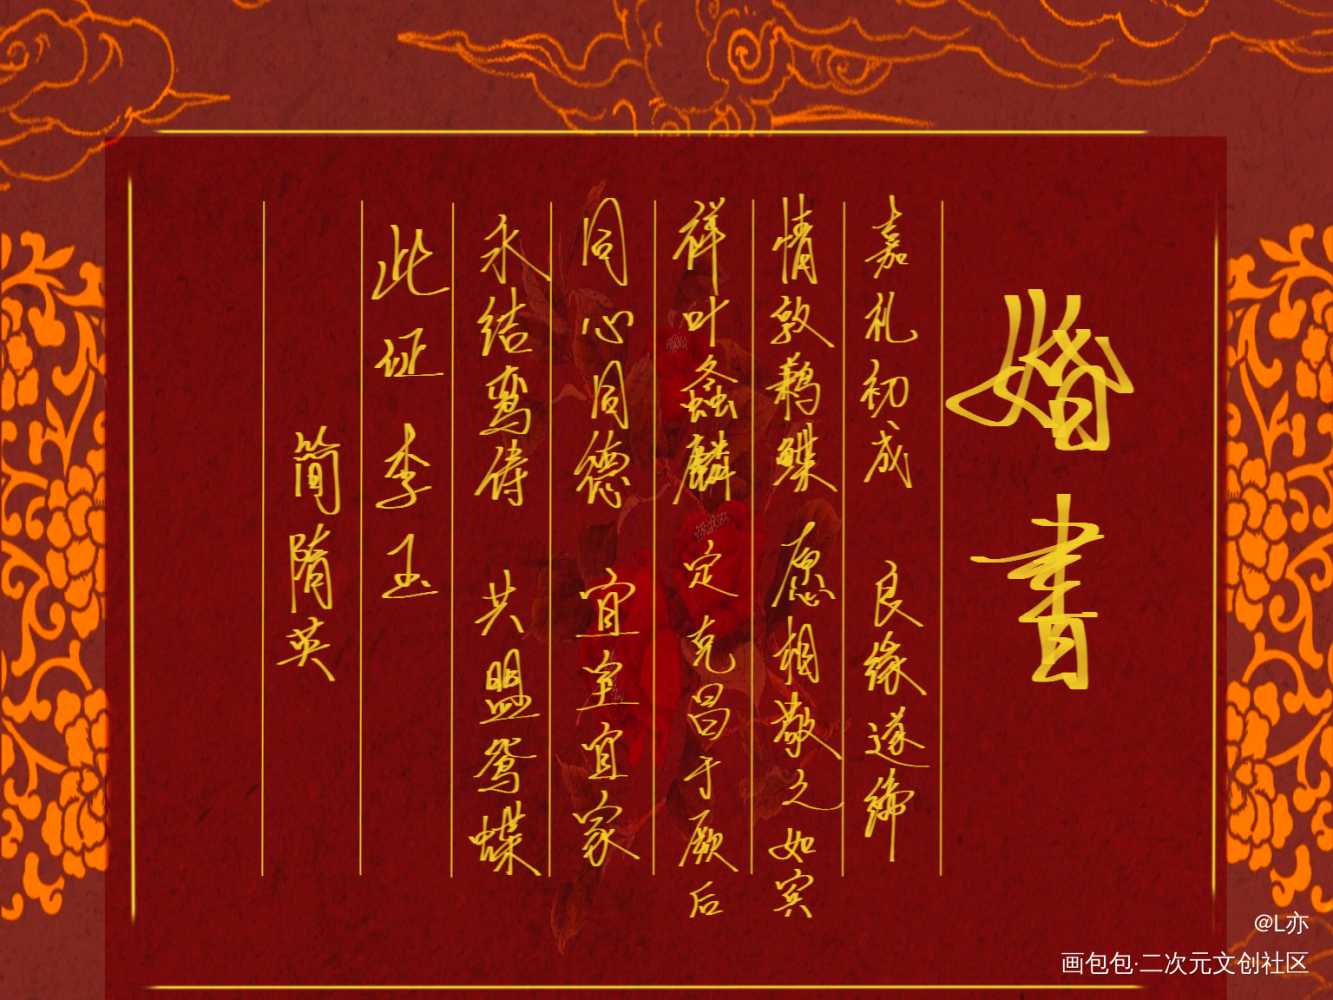 婚書
嘉礼初成 良缘遂缔
情敦鹣鲽 愿相敬之如宾
祥叶螽麟 定克昌于厥后
同心同德 宜室宜家
永结鸾俦 共盟鸳蝶
此证 李玉
简隋英
@L亦
画包包·二次元文创社区